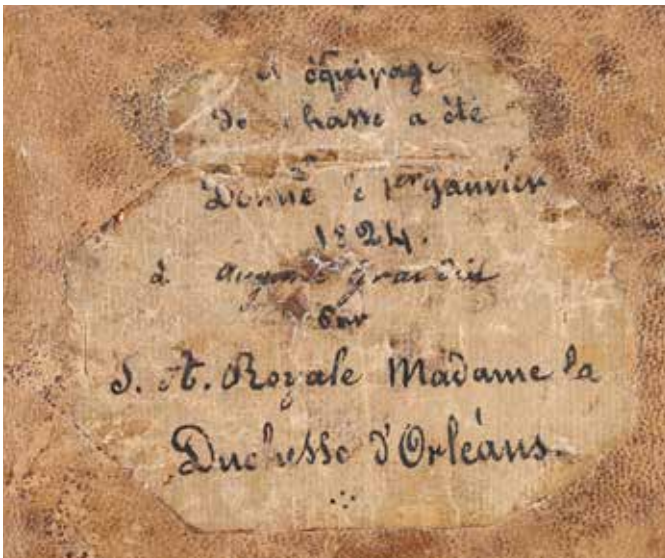 équipage
de chasse a été
Donné le 1er Janvier
1824.
à Auguste Grandin
Par
S. A. Royale Madame la
Duchesse d'Orléans.